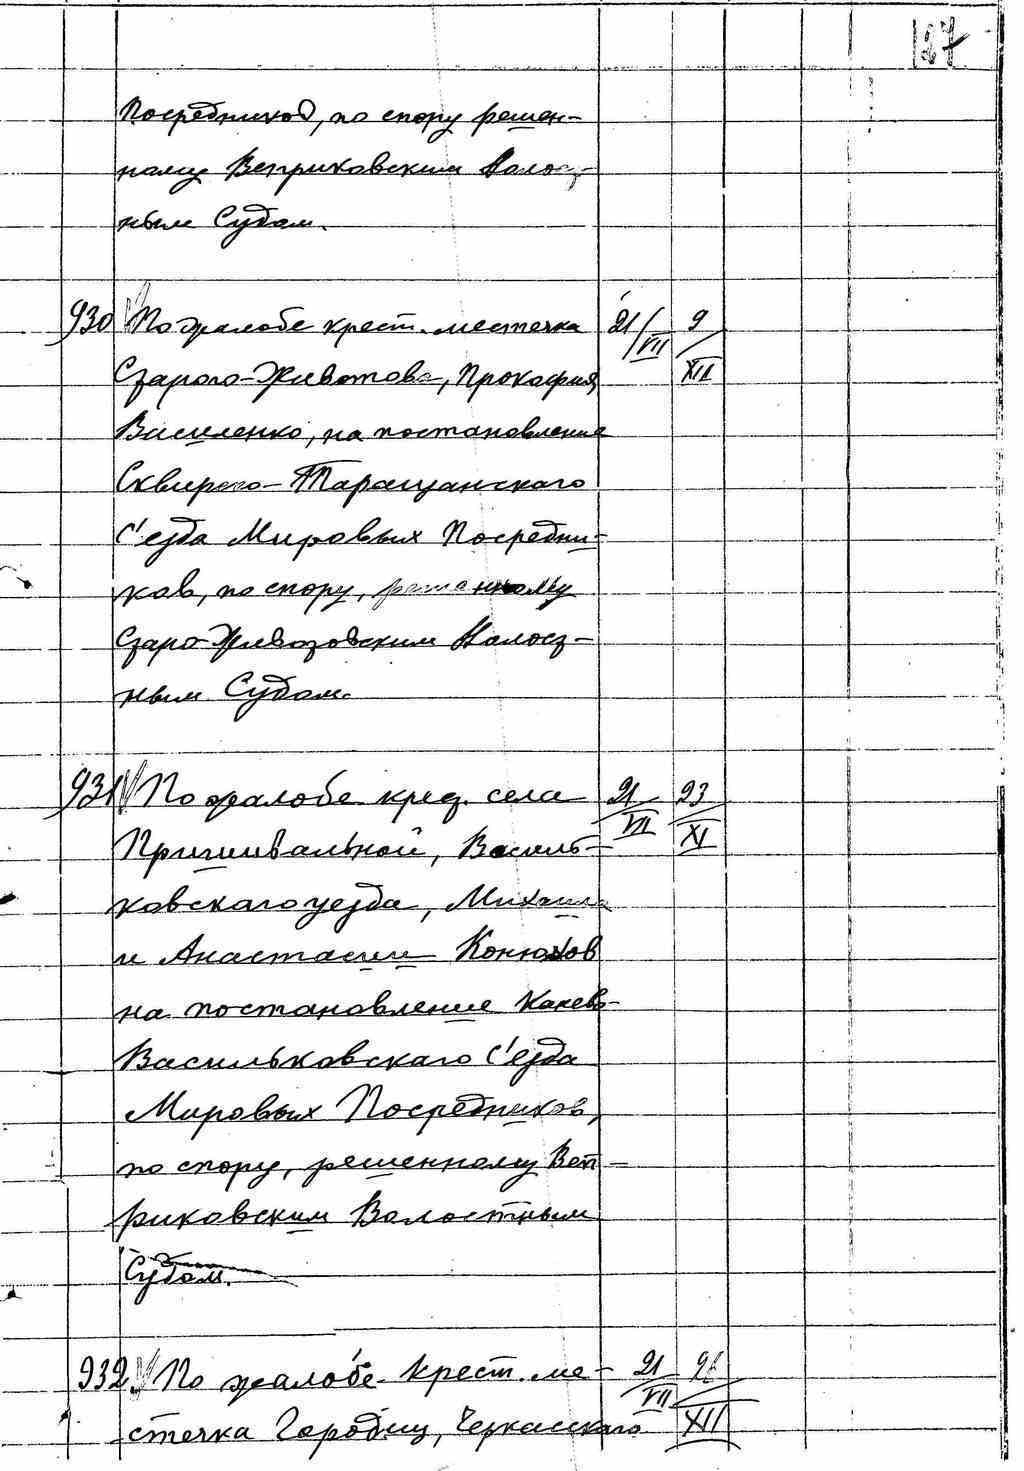 127
Посредников, по спору решен-
ному Веприковским Волост-
ным Судом.
930 По жалобе крест. местечка 21/VII 9/XII
Старого-Животова, Прокофия
Василенко, на постановление
Сквирско-Таращанскаго
С'езда Мировых Посредни-
ков, по спору, решенному
Старо-Животовским Волост-
ным Судом.
931 По жалобе крест. села 21/VII 23/XI
Пришивальной, Василь-
ковскаго уезда, Михаила
и Анастасии Конюхов
на постановление Канев-
Васильковскаго С'езда
Мировых Посредников,
по спору, решенному Веп-
риковским Волостным
Судом.
932 По жалобе крест. ме- 21/VII /XII
стечка Городищ, Черкасскаго